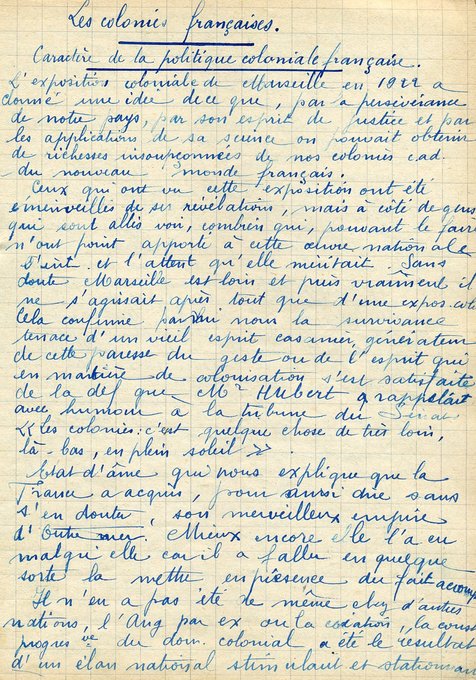 Les colonies françaises.
Caractère de la politique coloniale française.
L'exposition coloniale de Marseille en 1922 a
donné une idée de ce que, par a persévérance
de notre pays, par son esprit de justice et par
les applications de sa science on pouvait obtenir
de richesses insoupçonnées de nos colonies c.a.d.
du nouveau monde français.
Ceux qui ont vu cette exposition ont été
émerveillés de ses révélations, mais à côté de gens
qui sont allés voir, combien qui, pouvant le faire
n'ont point apporté à cette œuvre nationale
et l'attent qu'elle méritait. Sans
doute Marseille est loin et puis vraiment il
ne s'agissait après tout que d'une expos. cole
Cela confirme parmi nous la survivance
tenace d'un vieil esprit casanier, générateur
de cette paresse du geste ou de l'esprit qui
en matière de colonisation s'est satisfaite
de la déf que Mr HUBERT a rappelait
avec humour à la tribune du Sénat.
« Les colonies : c'est quelque chose de très loin,
là-bas, en plein soleil ».
Etat d'âme qui nous explique que la
France a acquis, pour ainsi dire sans
s'en douter, son merveilleux empire
d'Outre mer. Mieux encore elle l'a eu
malgré elle car il a fallu en quelque
sorte la mettre en présence du fait accomp
Il n'en a pas été de même chez d'autres
nations, l'Ang par ex où la la const
progres ve du dom. colonial a été le résultat
d'un élan national stimulant et